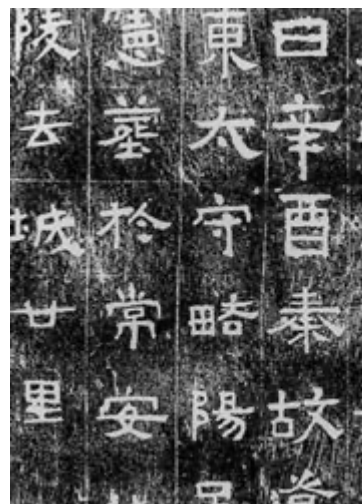 日辛酉秦故
東太守略陽
憲葬於常安
陵去城廿里